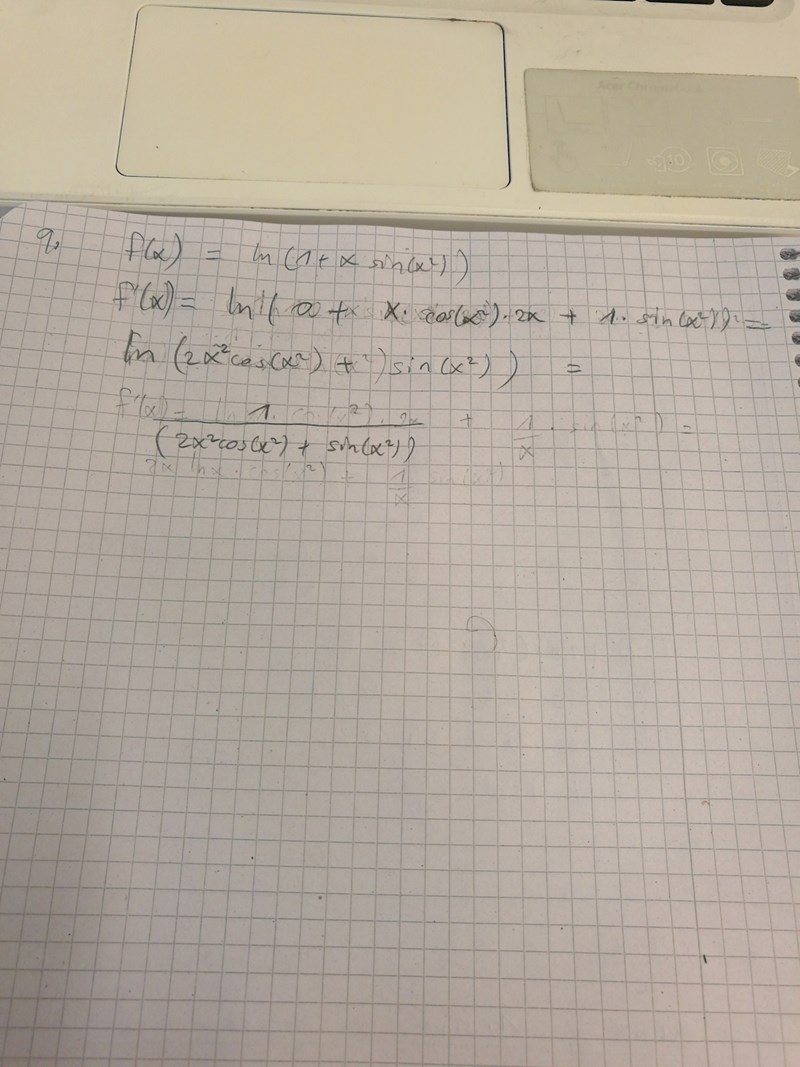 9.
f(x) = ln(1 + x sin(x²))
f'(x) = ln'( 0 + x · cos(x²) · 2x + 1 · sin(x²)) =
ln (2x²cos(x²) + sin(x²)) =
1
(2x²cos(x²) + sin(x²))